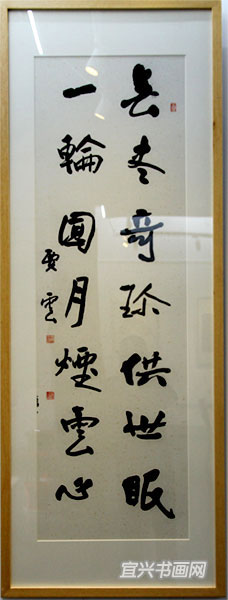 奇珍供世眼
一輪圓月煙雲心
雲
宜兴书画网